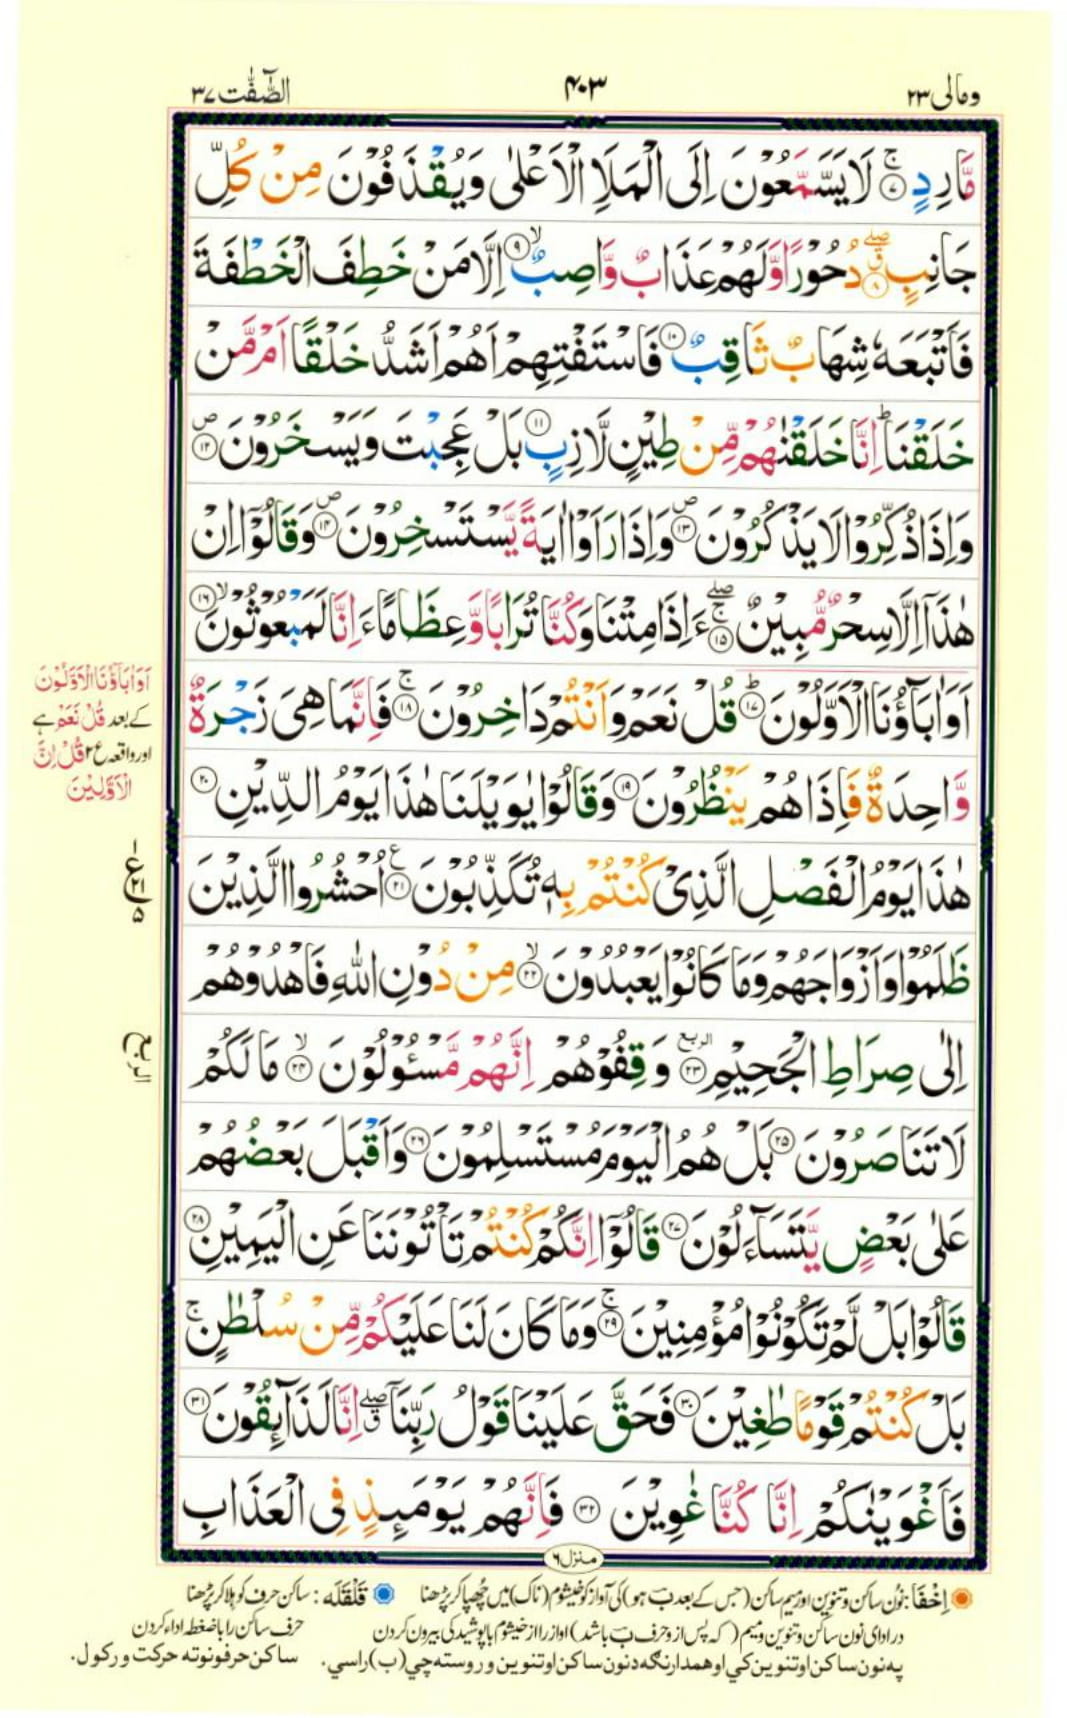 ومالی ٢٣
۴۰۳
الصّٰٓفّٰت ٣٧
مَّارِدٍ ۚ‏﴿۷﴾ لَا يَسَّمَّعُوْنَ اِلَى الْمَلَاِ الْاَعْلٰى وَيُقْذَفُوْنَ مِنْ كُلِّ
جَانِبٍ ۖۗ‏﴿۸﴾ دُحُوْرًا وَّلَهُمْ عَذَابٌ وَّاصِبٌ ۙ‏﴿۹﴾ اِلَّا مَنْ خَطِفَ الْخَطْفَةَ
فَاَتْبَعَهٗ شِهَابٌ ثَاقِبٌ ﴿۱۰﴾ فَاسْتَفْتِهِمْ اَهُمْ اَشَدُّ خَلْقًا اَمْ مَّنْ
خَلَقْنَا ؕ اِنَّا خَلَقْنٰهُمْ مِّنْ طِيْنٍ لَّازِبٍ ﴿۱۱﴾ بَلْ عَجِبْتَ وَيَسْخَرُوْنَ ۪‏﴿۱۲﴾
وَاِذَا ذُكِّرُوْا لَا يَذْكُرُوْنَ ۪‏﴿۱۳﴾ وَاِذَا رَاَوْا اٰيَةً يَّسْتَسْخِرُوْنَ ۪‏﴿۱۴﴾ وَقَالُوْۤا اِنْ
هٰذَاۤ اِلَّا سِحْرٌ مُّبِيْنٌ ۖۚ‏﴿۱۵﴾ ءَاِذَا مِتْنَا وَكُنَّا تُرَابًا وَّعِظَامًا ءَاِنَّا لَمَبْعُوْثُوْنَ ۙ‏﴿۱۶﴾
اَوَاٰبَآؤُنَا الْاَوَّلُوْنَ ؕ‏﴿۱۷﴾ قُلْ نَعَمْ وَاَنْتُمْ دَاخِرُوْنَ ۚ‏﴿۱۸﴾ فَاِنَّمَا هِىَ زَجْرَةٌ
وَّاحِدَةٌ فَاِذَا هُمْ يَنْظُرُوْنَ ﴿۱۹﴾ وَقَالُوْا يٰوَيْلَنَا هٰذَا يَوْمُ الدِّيْنِ ﴿۲۰﴾
هٰذَا يَوْمُ الْفَصْلِ الَّذِىْ كُنْتُمْ بِهٖ تُكَذِّبُوْنَ ﴿۲۱﴾ ع اُحْشُرُوا الَّذِيْنَ
ظَلَمُوْا وَاَزْوَاجَهُمْ وَمَا كَانُوْا يَعْبُدُوْنَ ۙ‏﴿۲۲﴾ مِنْ دُوْنِ اللّٰهِ فَاهْدُوْهُمْ
اِلٰى صِرَاطِ الْجَحِيْمِ ﴿۲۳﴾ الربع وَقِفُوْهُمْ اِنَّهُمْ مَّسْئُوْلُوْنَ ۙ‏﴿۲۴﴾ مَا لَكُمْ
لَا تَنَاصَرُوْنَ ﴿۲۵﴾ بَلْ هُمُ الْيَوْمَ مُسْتَسْلِمُوْنَ ﴿۲۶﴾ وَاَقْبَلَ بَعْضُهُمْ
عَلٰى بَعْضٍ يَّتَسَآءَلُوْنَ ﴿۲۷﴾ قَالُوْۤا اِنَّكُمْ كُنْتُمْ تَاْتُوْنَنَا عَنِ الْيَمِيْنِ ﴿۲۸﴾
قَالُوْا بَلْ لَّمْ تَكُوْنُوْا مُؤْمِنِيْنَ ۚ‏﴿۲۹﴾ وَمَا كَانَ لَنَا عَلَيْكُمْ مِّنْ سُلْطٰنٍ ۚ
بَلْ كُنْتُمْ قَوْمًا طٰغِيْنَ ﴿۳۰﴾ فَحَقَّ عَلَيْنَا قَوْلُ رَبِّنَاۤ ۖۗ اِنَّا لَذَآئِقُوْنَ ﴿۳۱﴾
فَاَغْوَيْنٰكُمْ اِنَّا كُنَّا غٰوِيْنَ ﴿۳۲﴾ فَاِنَّهُمْ يَوْمَئِذٍ فِى الْعَذَابِ
منزل ٦
اَوَاٰبَآؤُنَا الْاَوَّلُوْنَ
کے بعد قُلْ نَعَمْ ہے
اور واقعہ ع ۲ قُلْ اِنَّ
الْاَوَّلِيْنَ
ع
٢١
٥
الربع
اِخْفَا: نُون ساکن و تنوین اور میم ساکن (جس کے بعد بَ ہو) کی آواز کو خیشوم (ناک) میں چُھپا کر پڑھنا
قَلْقَلَه : ساکن حرف کو ہلا کر پڑھنا
در ادای نون ساکن و تنوین و میم (که پس از و حرف بَ باشد) آواز را از خیشوم با پوشیدگی بیرون کردن
حرف ساکن را با ضغطه ادا کردن
په نون ساکن او تنوین کي او همدارنگه د نون ساکن او تنوین و روسته چي (ب) راسي.
ساکن حرفو نو ته حرکت ورکول.